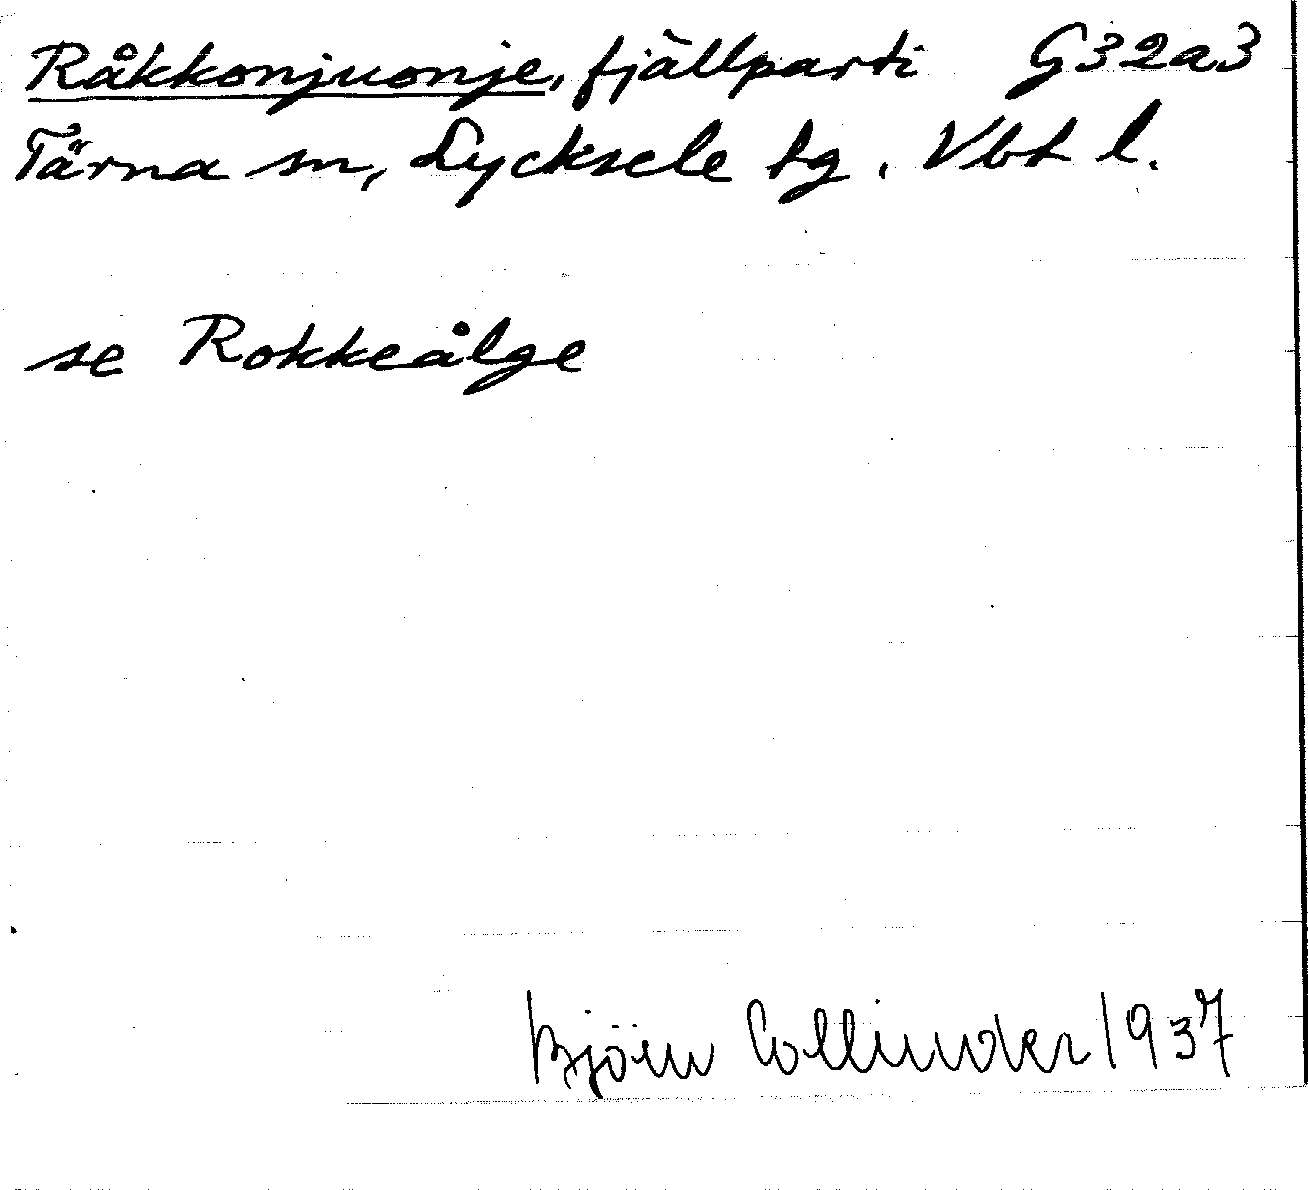 Råkkonjuonje, fjällparti G32a3
Tärna sn, Lycksele lg. Vbt l.
se Rokkeålge
Björn Collinder 1937